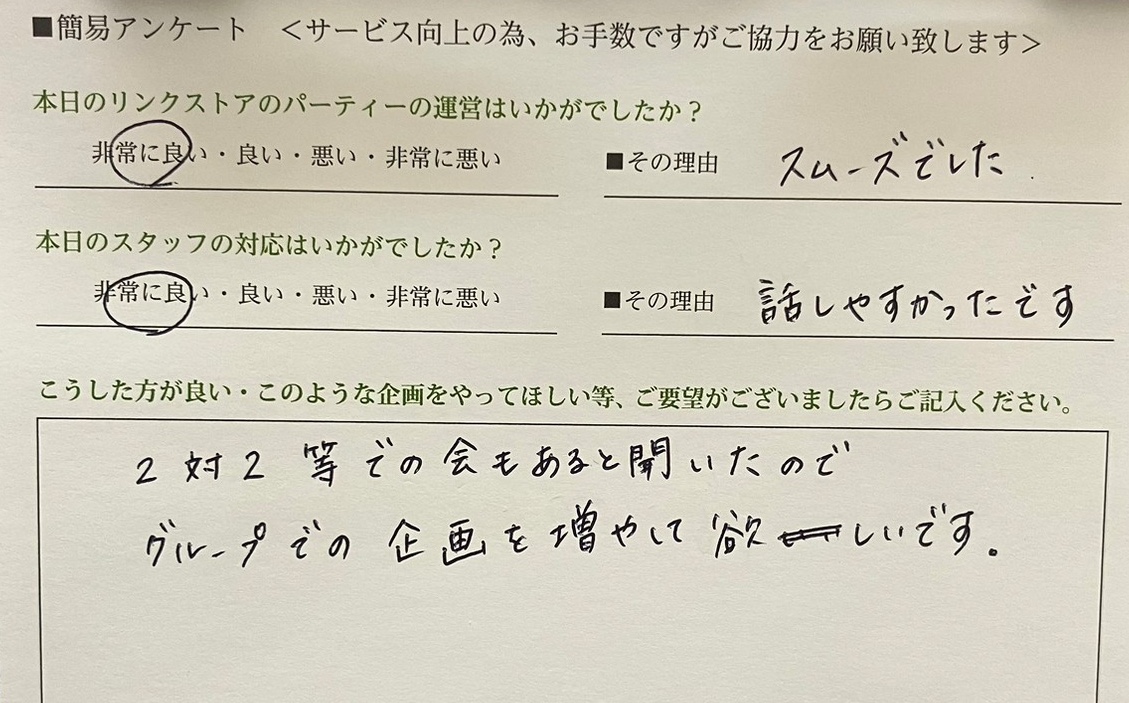 ■簡易アンケート <サービス向上の為、お手数ですがご協力をお願い致します>
本日のリンクストアのパーティーの運営はいかがでしたか?
非常に良い・良い・悪い・非常に悪い ■その理由 スムーズでした
本日のスタッフの対応はいかがでしたか?
非常に良い・良い・悪い・非常に悪い ■その理由 話しやすかったです
こうした方が良い・このような企画をやってほしい等、ご要望がございましたらご記入ください。
2対2等での会もあると聞いたので
グループでの企画を増やして欲しいです。